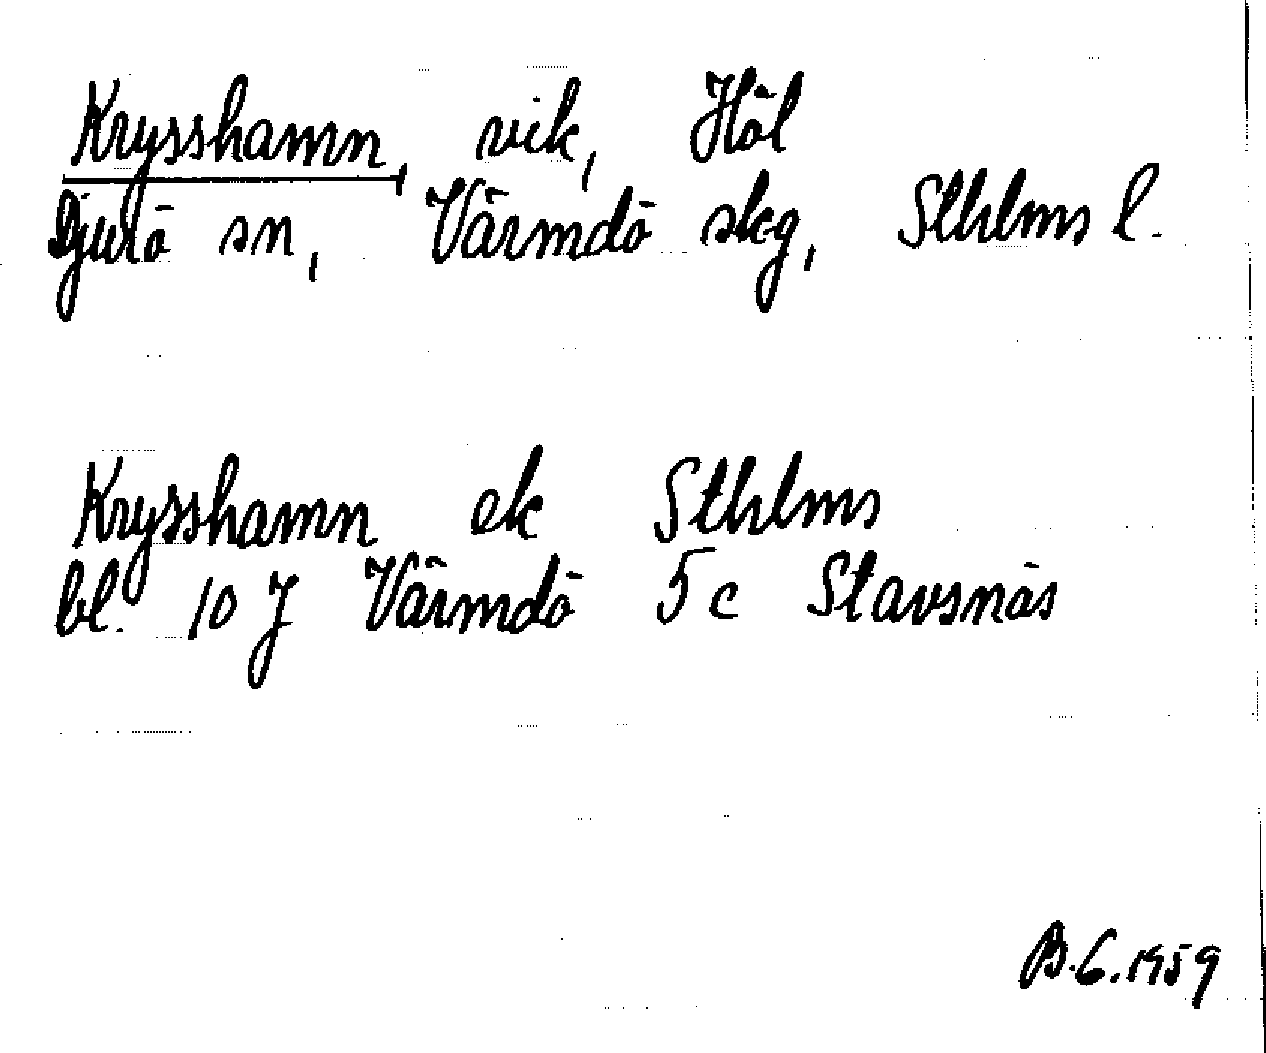 Krysshamn, vik, Höl
Djurö sn, Värmdö skg, Sthlms l.
Krysshamn ek Sthlms
bl. 10 J Värmdö 5 c Stavsnäs
B.G. 1959